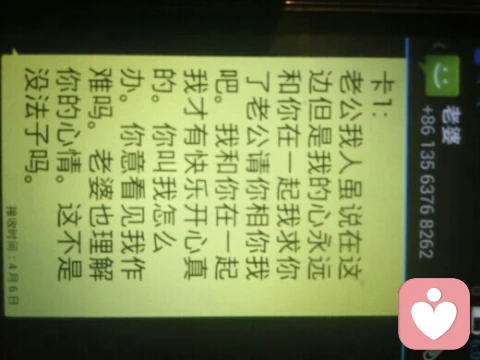 老婆
+86 135 6376 8262
卡1:
老公我人虽说在这
边但是我的心永远
和你在一起我求你
了老公请你相你我
吧。我和你在一起
我才有快乐开心真
的。你叫我怎么
办。你意看见我作
难吗。老婆也理解
你的心情。这不是
没法子吗。
接收时间：4月6日